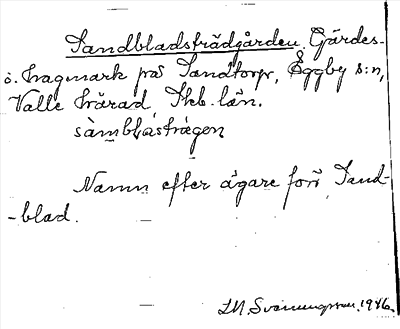 Sandbladsträdgården. Gärdes-
o. hagmark på Sandtorp, Eggby s:n,
Valle härad Skb. län.
Namn efter ägare förr, Sand-
-blad.
L.M. Svenungsson. 1946.